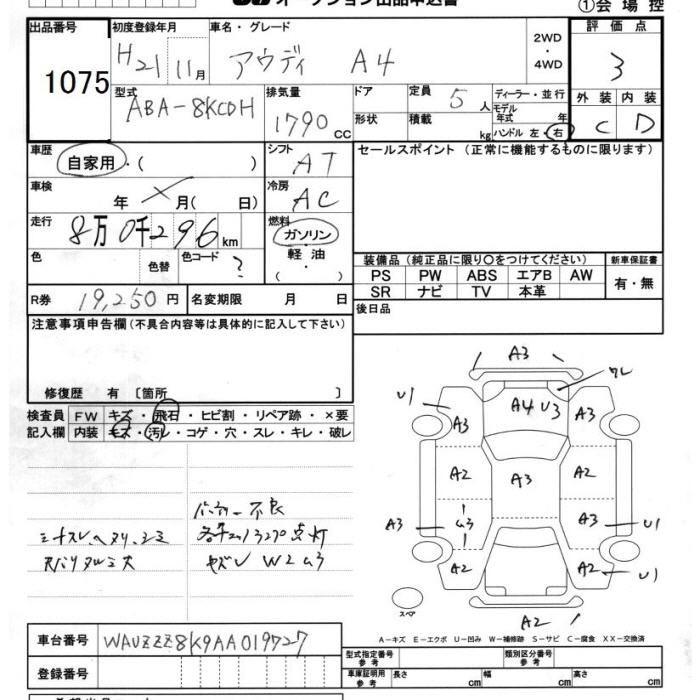 オークション出品申込書
①会場控
出品番号 1075
初度登録年月 H21 11月
車名・グレード アウディ A4
2WD・4WD
評価点 3
型式 ABA-8KCDH
排気量 1790 CC
ドア
形状
定員 5 人
積載 kg
ディーラー・並行
モデル年式 年
ハンドル 左・右
外装 C 内装 D
車歴 自家用・( )
シフト AT
セールスポイント (正常に機能するものに限ります)
車検 年 月( 日)
冷房 AC
走行 8万0千296 km
燃料 ガソリン・軽油・( )
色 色替 色コード ?
装備品 (純正品に限り○をつけてください)
新車保証書
PS PW ABS エアB AW
有・無
SR ナビ TV 本革
R券 19,250 円 名変期限 月 日
後日品
注意事項申告欄 (不具合内容等は具体的に記入して下さい)
修復歴 有 〔箇所 〕
検査員記入欄
FW キズ・飛石・ヒビ割・リペア跡・×要
内装 キズ・汚レ・コゲ・穴・スレ・キレ・破レ
A3
U1 A3 A4 U3 A3
A2 A3 A2
A3 U3 A3 U1
A2 A2 U1
スペア
A2
不良
W2 U3
A-キズ E-エクボ U-凹み W-補修跡 S-サビ C-腐食 XX-交換済
車台番号 WAUZZZ8K9AA019727
型式指定番号 参考 類別区分番号 参考
登録番号
車庫証明用 参考 長さ cm 幅 cm 高さ cm